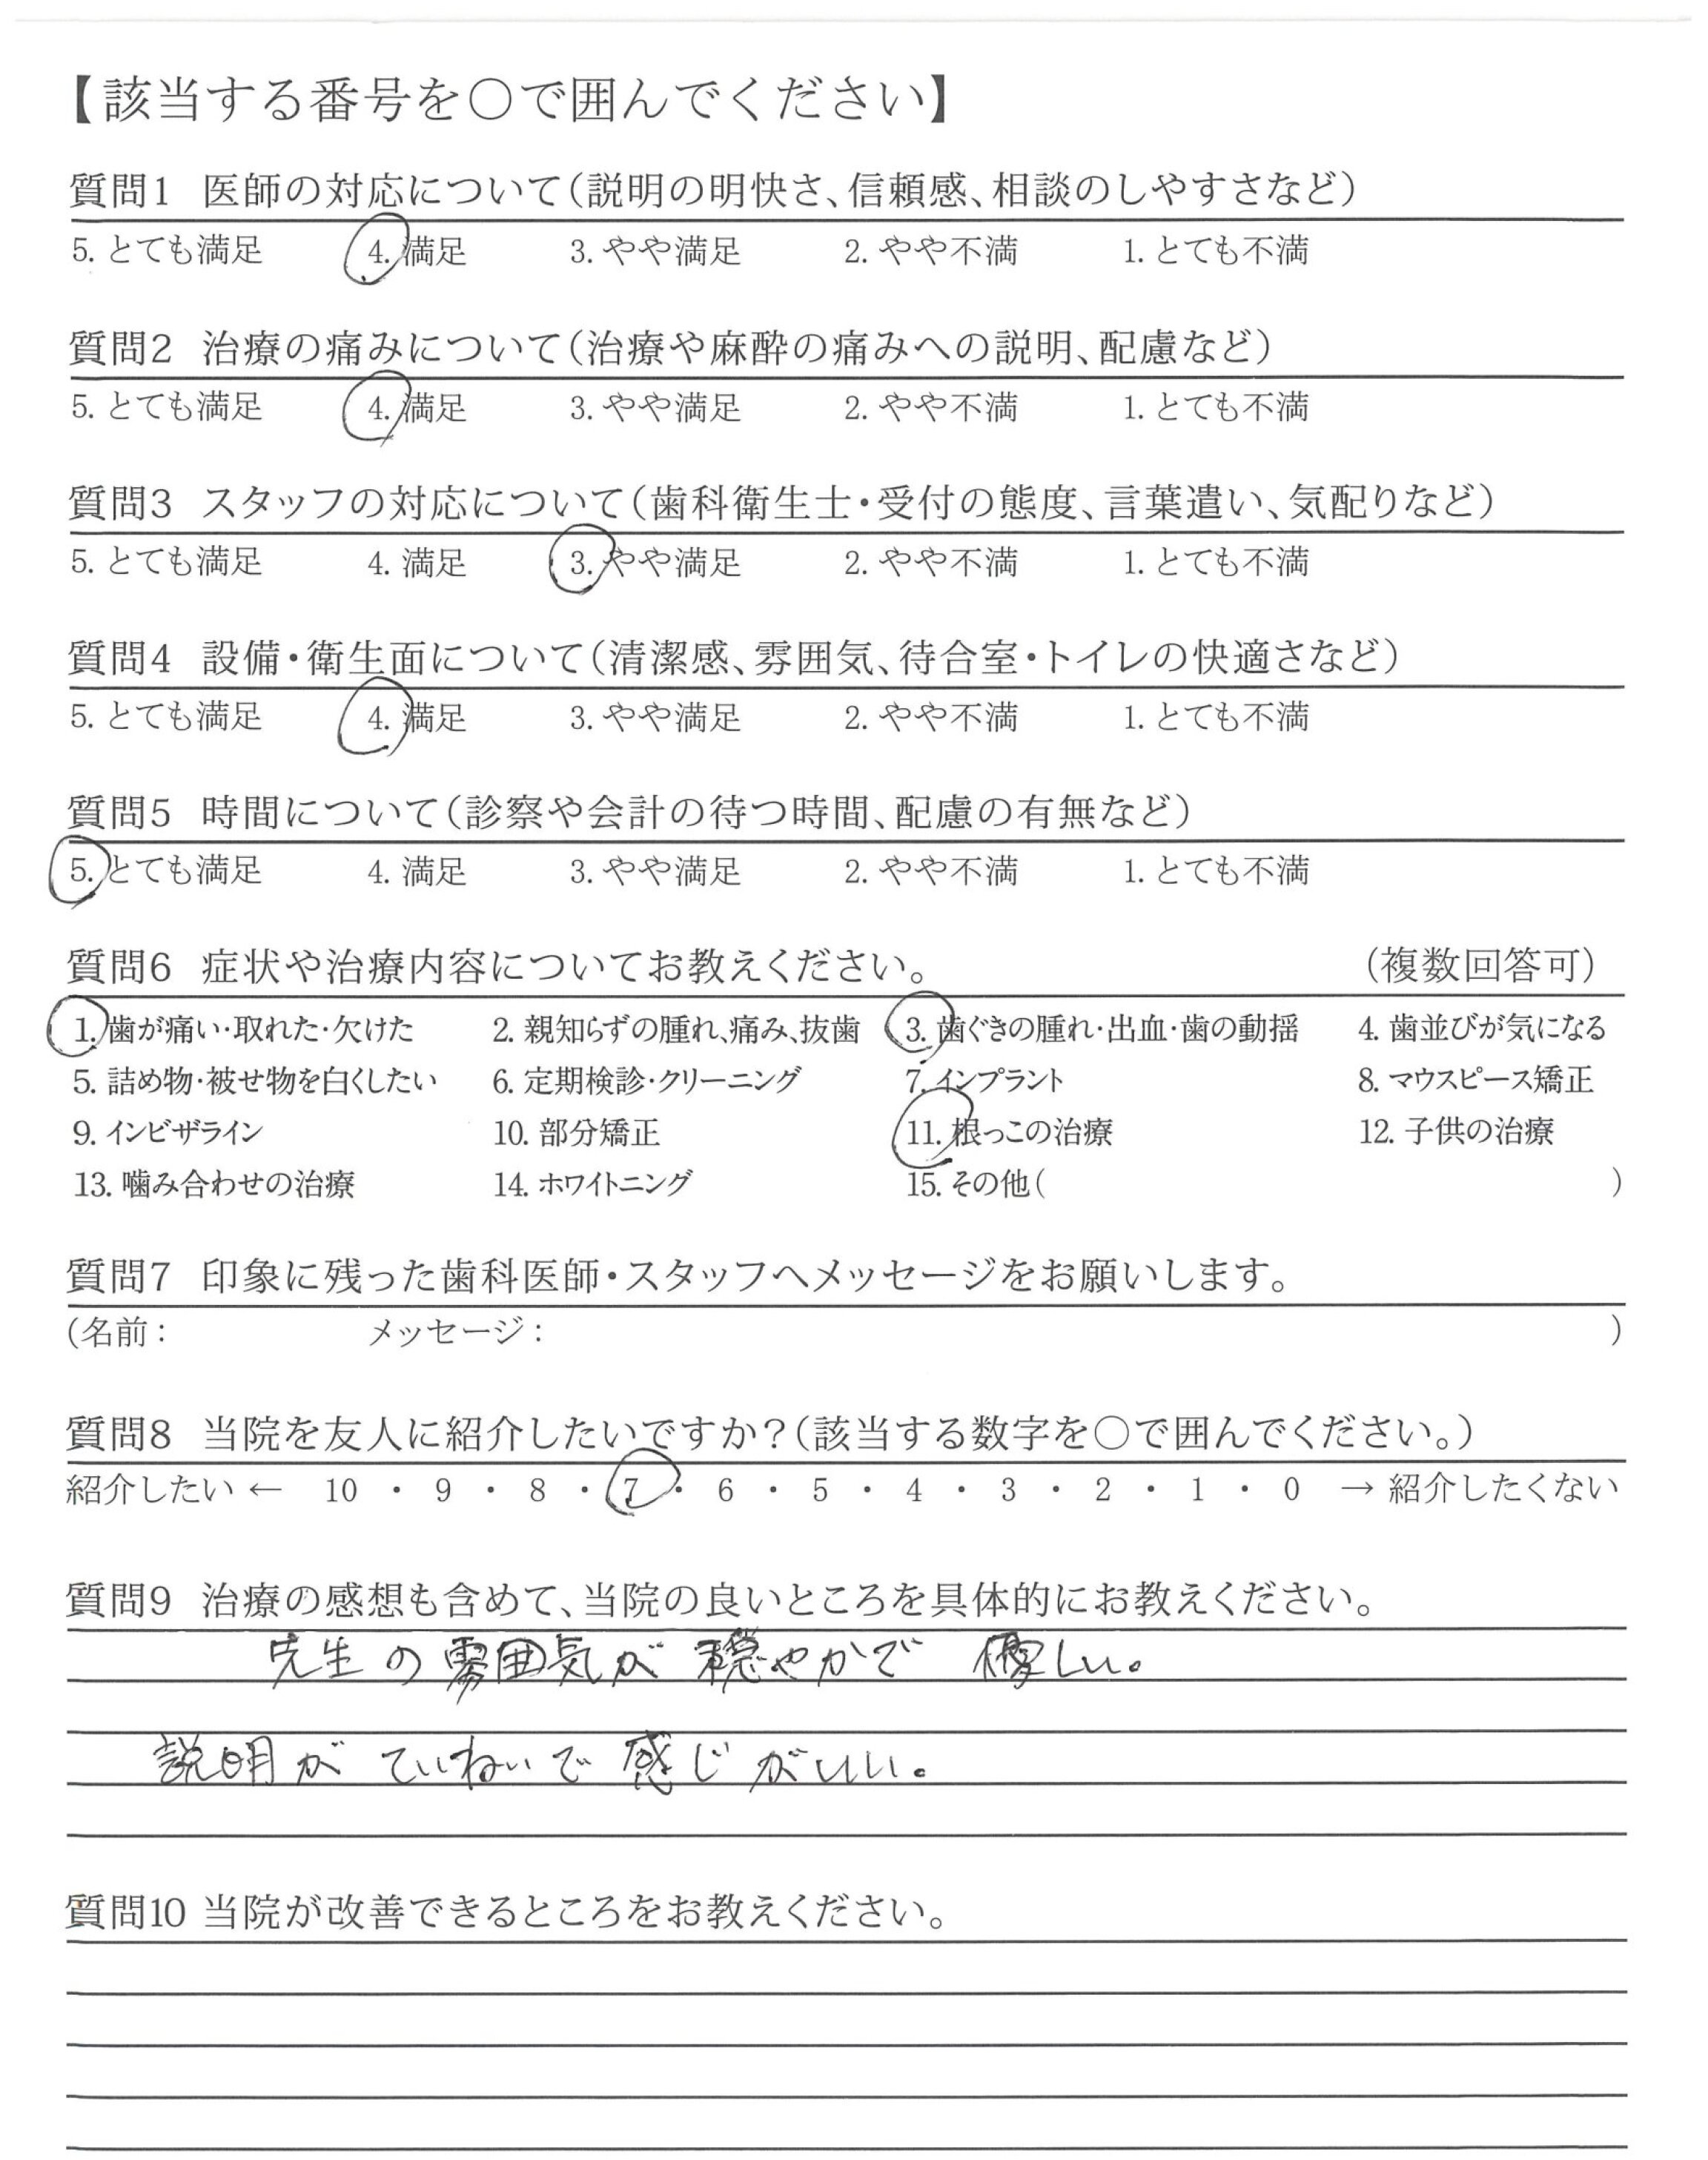 【該当する番号を○で囲んでください】
質問1 医師の対応について(説明の明快さ、信頼感、相談のしやすさなど)
5. とても満足 4. 満足 3. やや満足 2. やや不満 1. とても不満
質問2 治療の痛みについて(治療や麻酔の痛みへの説明、配慮など)
5. とても満足 4. 満足 3. やや満足 2. やや不満 1. とても不満
質問3 スタッフの対応について(歯科衛生士・受付の態度、言葉遣い、気配りなど)
5. とても満足 4. 満足 3. やや満足 2. やや不満 1. とても不満
質問4 設備・衛生面について(清潔感、雰囲気、待合室・トイレの快適さなど)
5. とても満足 4. 満足 3. やや満足 2. やや不満 1. とても不満
質問5 時間について(診察や会計の待つ時間、配慮の有無など)
5. とても満足 4. 満足 3. やや満足 2. やや不満 1. とても不満
質問6 症状や治療内容についてお教えください。 (複数回答可)
1. 歯が痛い・取れた・欠けた 2. 親知らずの腫れ、痛み、抜歯 3. 歯ぐきの腫れ・出血・歯の動揺 4. 歯並びが気になる
5. 詰め物・被せ物を白くしたい 6. 定期検診・クリーニング 7. インプラント 8. マウスピース矯正
9. インビザライン 10. 部分矯正 11. 根っこの治療 12. 子供の治療
13. 噛み合わせの治療 14. ホワイトニング 15. その他( )
質問7 印象に残った歯科医師・スタッフへメッセージをお願いします。
(名前: メッセージ: )
質問8 当院を友人に紹介したいですか?(該当する数字を○で囲んでください。)
紹介したい ← 10 ・ 9 ・ 8 ・ 7 ・ 6 ・ 5 ・ 4 ・ 3 ・ 2 ・ 1 ・ 0 → 紹介したくない
質問9 治療の感想も含めて、当院の良いところを具体的にお教えください。
先生の雰囲気が穏やかで 優しい。
説明が ていねいで 感じがいい。
質問10 当院が改善できるところをお教えください。